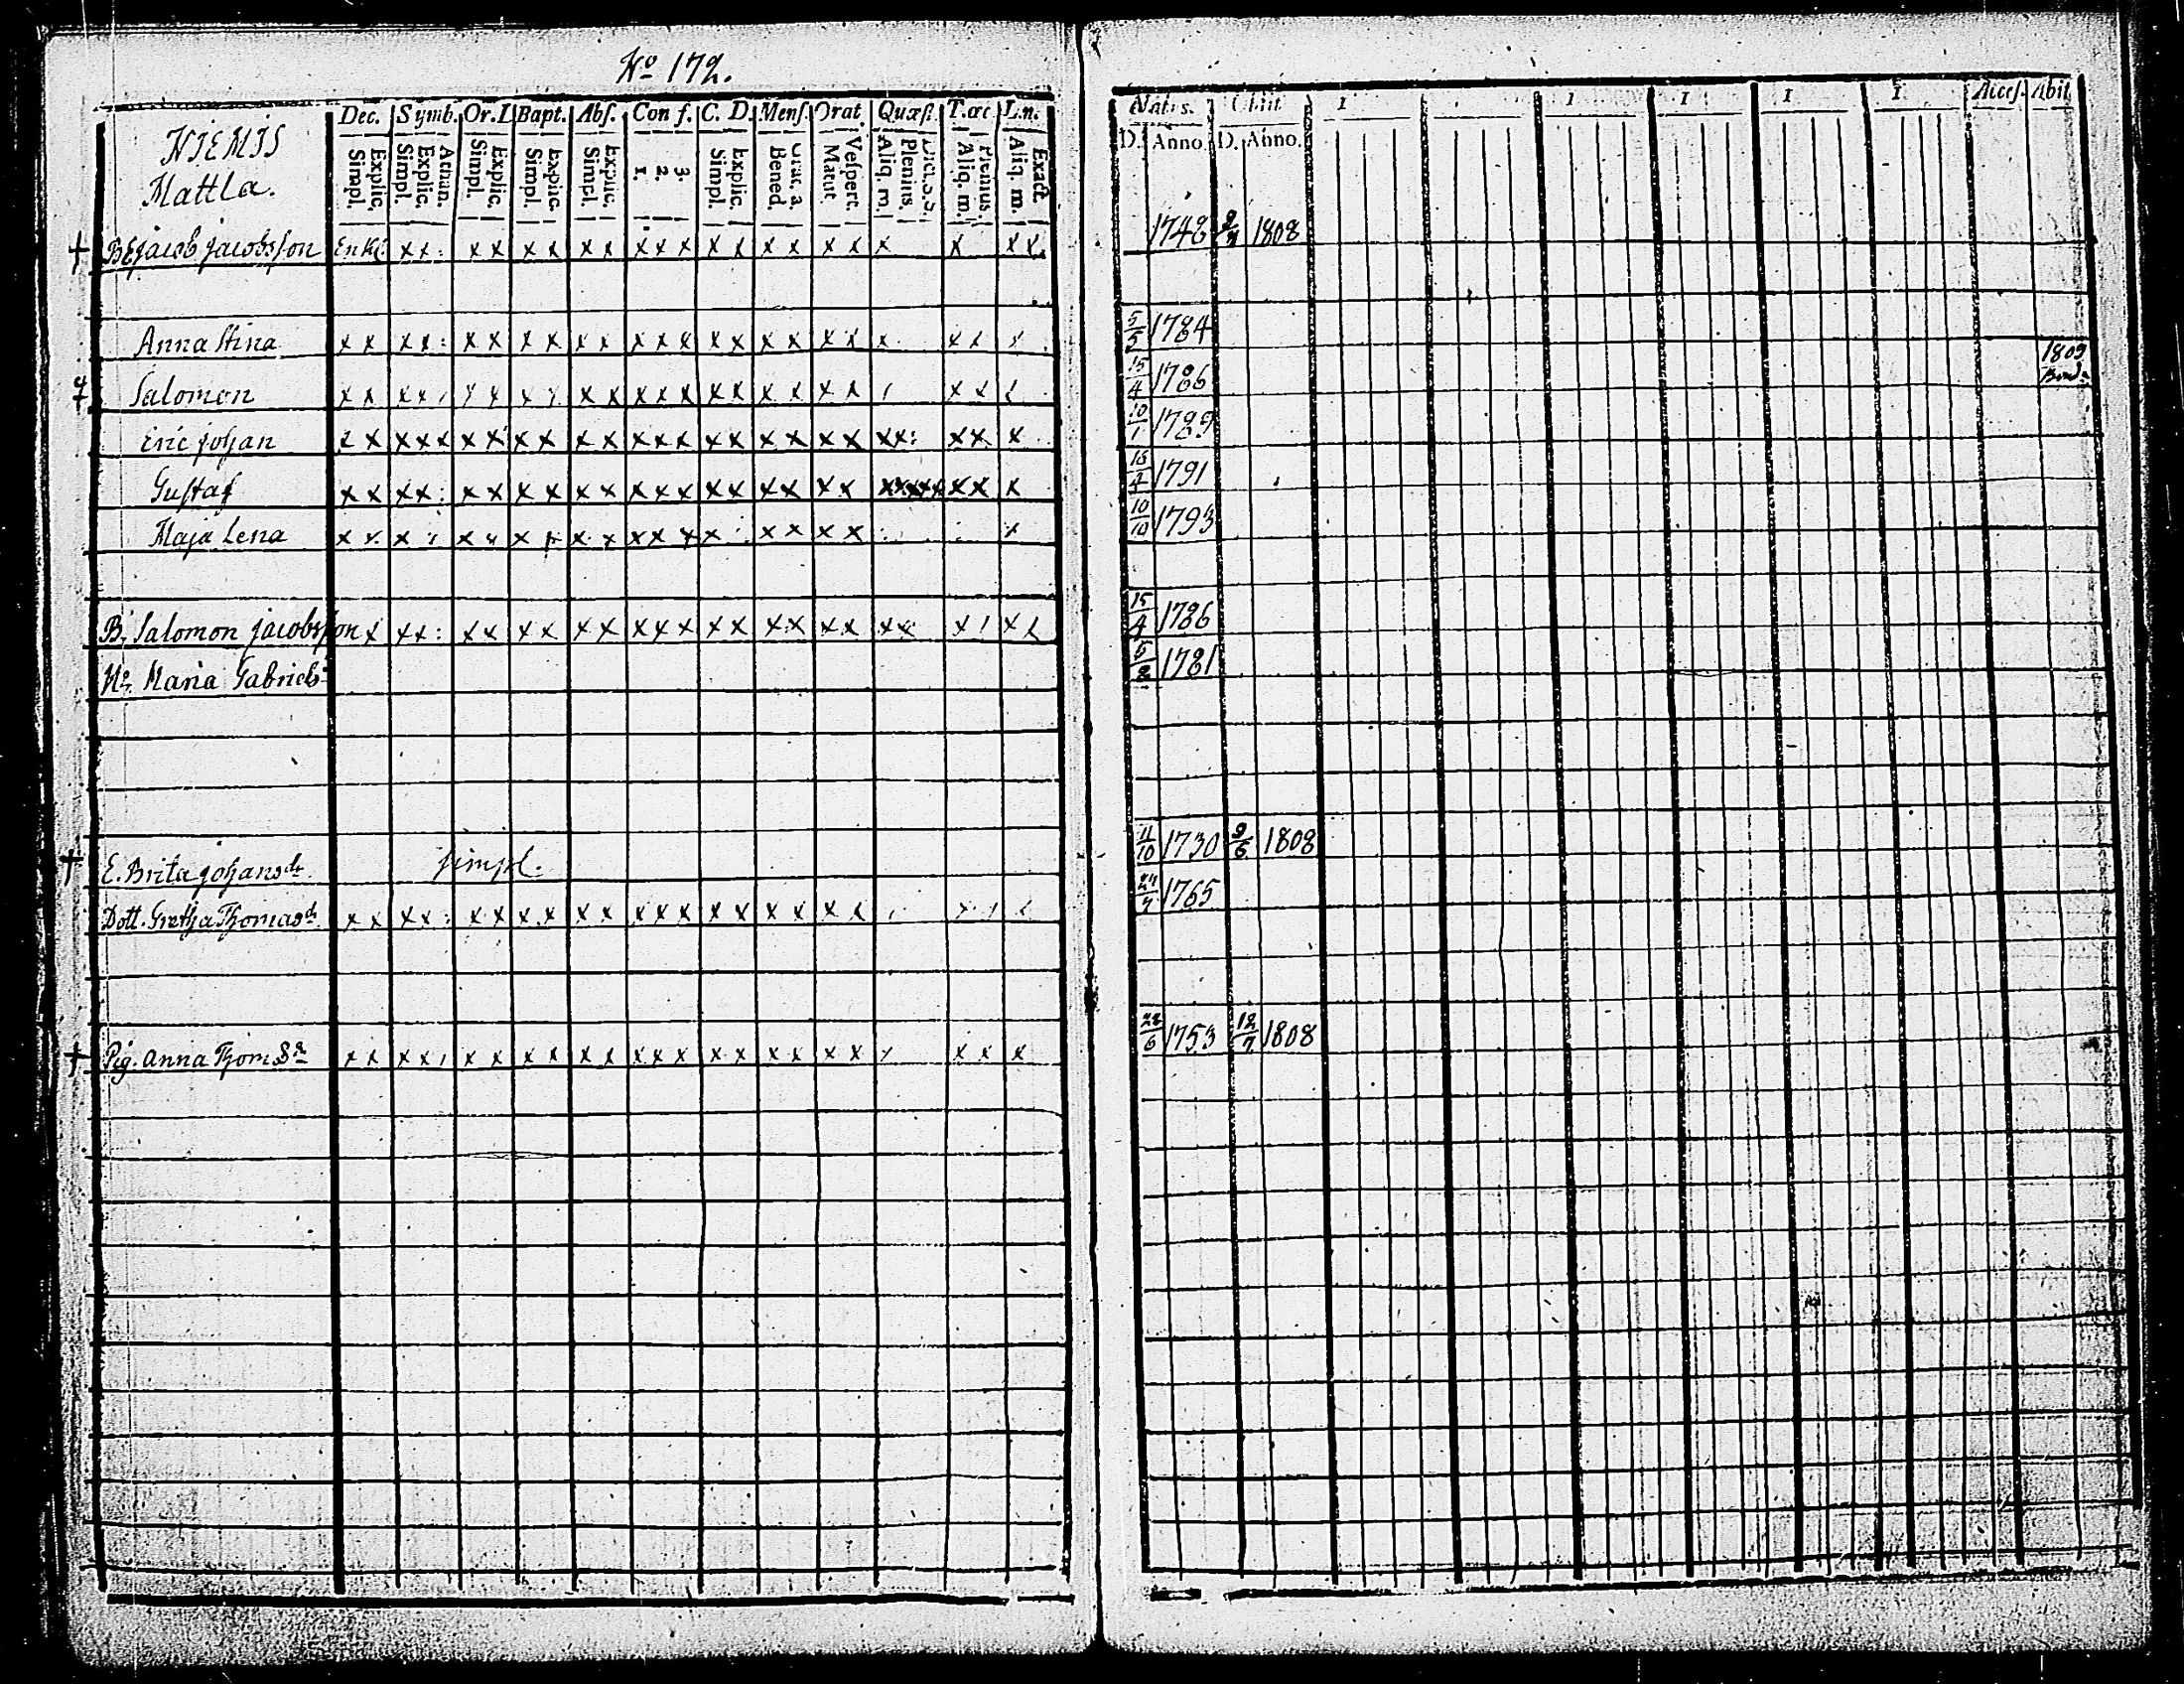 No 172.
Dec. Symb. Or. D Bapt. Abſ. Conf. C. D. Menſ. Orat. Quæſt. T. œc L. n.
HIEMIS
Mattla.
Explic. Simpl. Athan. Explic. Simpl. Explic. Simpl. Explic. Simpl. Explic. Simpl. 3. 2. 1. Explic. Simpl. Grac. a. Bened. Veſpert. Matut. Dict. S. S. Plenius. Aliq. m. Plenius. Aliq. m. Exact Aliq. m.
Natus. Obiit 1 1 1 1 1 Acceſ. Abit
D. Anno D. Anno.
† Jacob Jacobsson Enkl. x x : x x x x x x x x x x x x x x x x x x x x 1748 1808
Anna Stina x x x x : x x x x x x x x x x x x x x x x x x x 5/5 1784
Salomon x x x x x x x x x x x x x x x x x x x x 15/4 1786 1809
Eric Johan x x x x x x x x x x x x x x x x x x x x x x : x x x 10/1 1789
Gustaf x x x x : x x x x x x x x x x x x x x x x x x x x x x x 18/4 1791
Maja Lena x x x x x x x x x x x x x x x x x x 10/10 1793
B. Salomon Jacobsson x x x : x x x x x x x x x x x x x x x x x x x x 15/4 1786
Maria Gabriels 1781
† E. Brita Johansdr simpl. 11/10 1730 9/6 1808
Dott. Gretha Thomasdr x x x x : x x x x x x x x x x x x x x x 1765
† Pig. Anna Thoms x x x x x x x x x x x x x x x x x x x x x x x 28/6 1753 12/7 1808